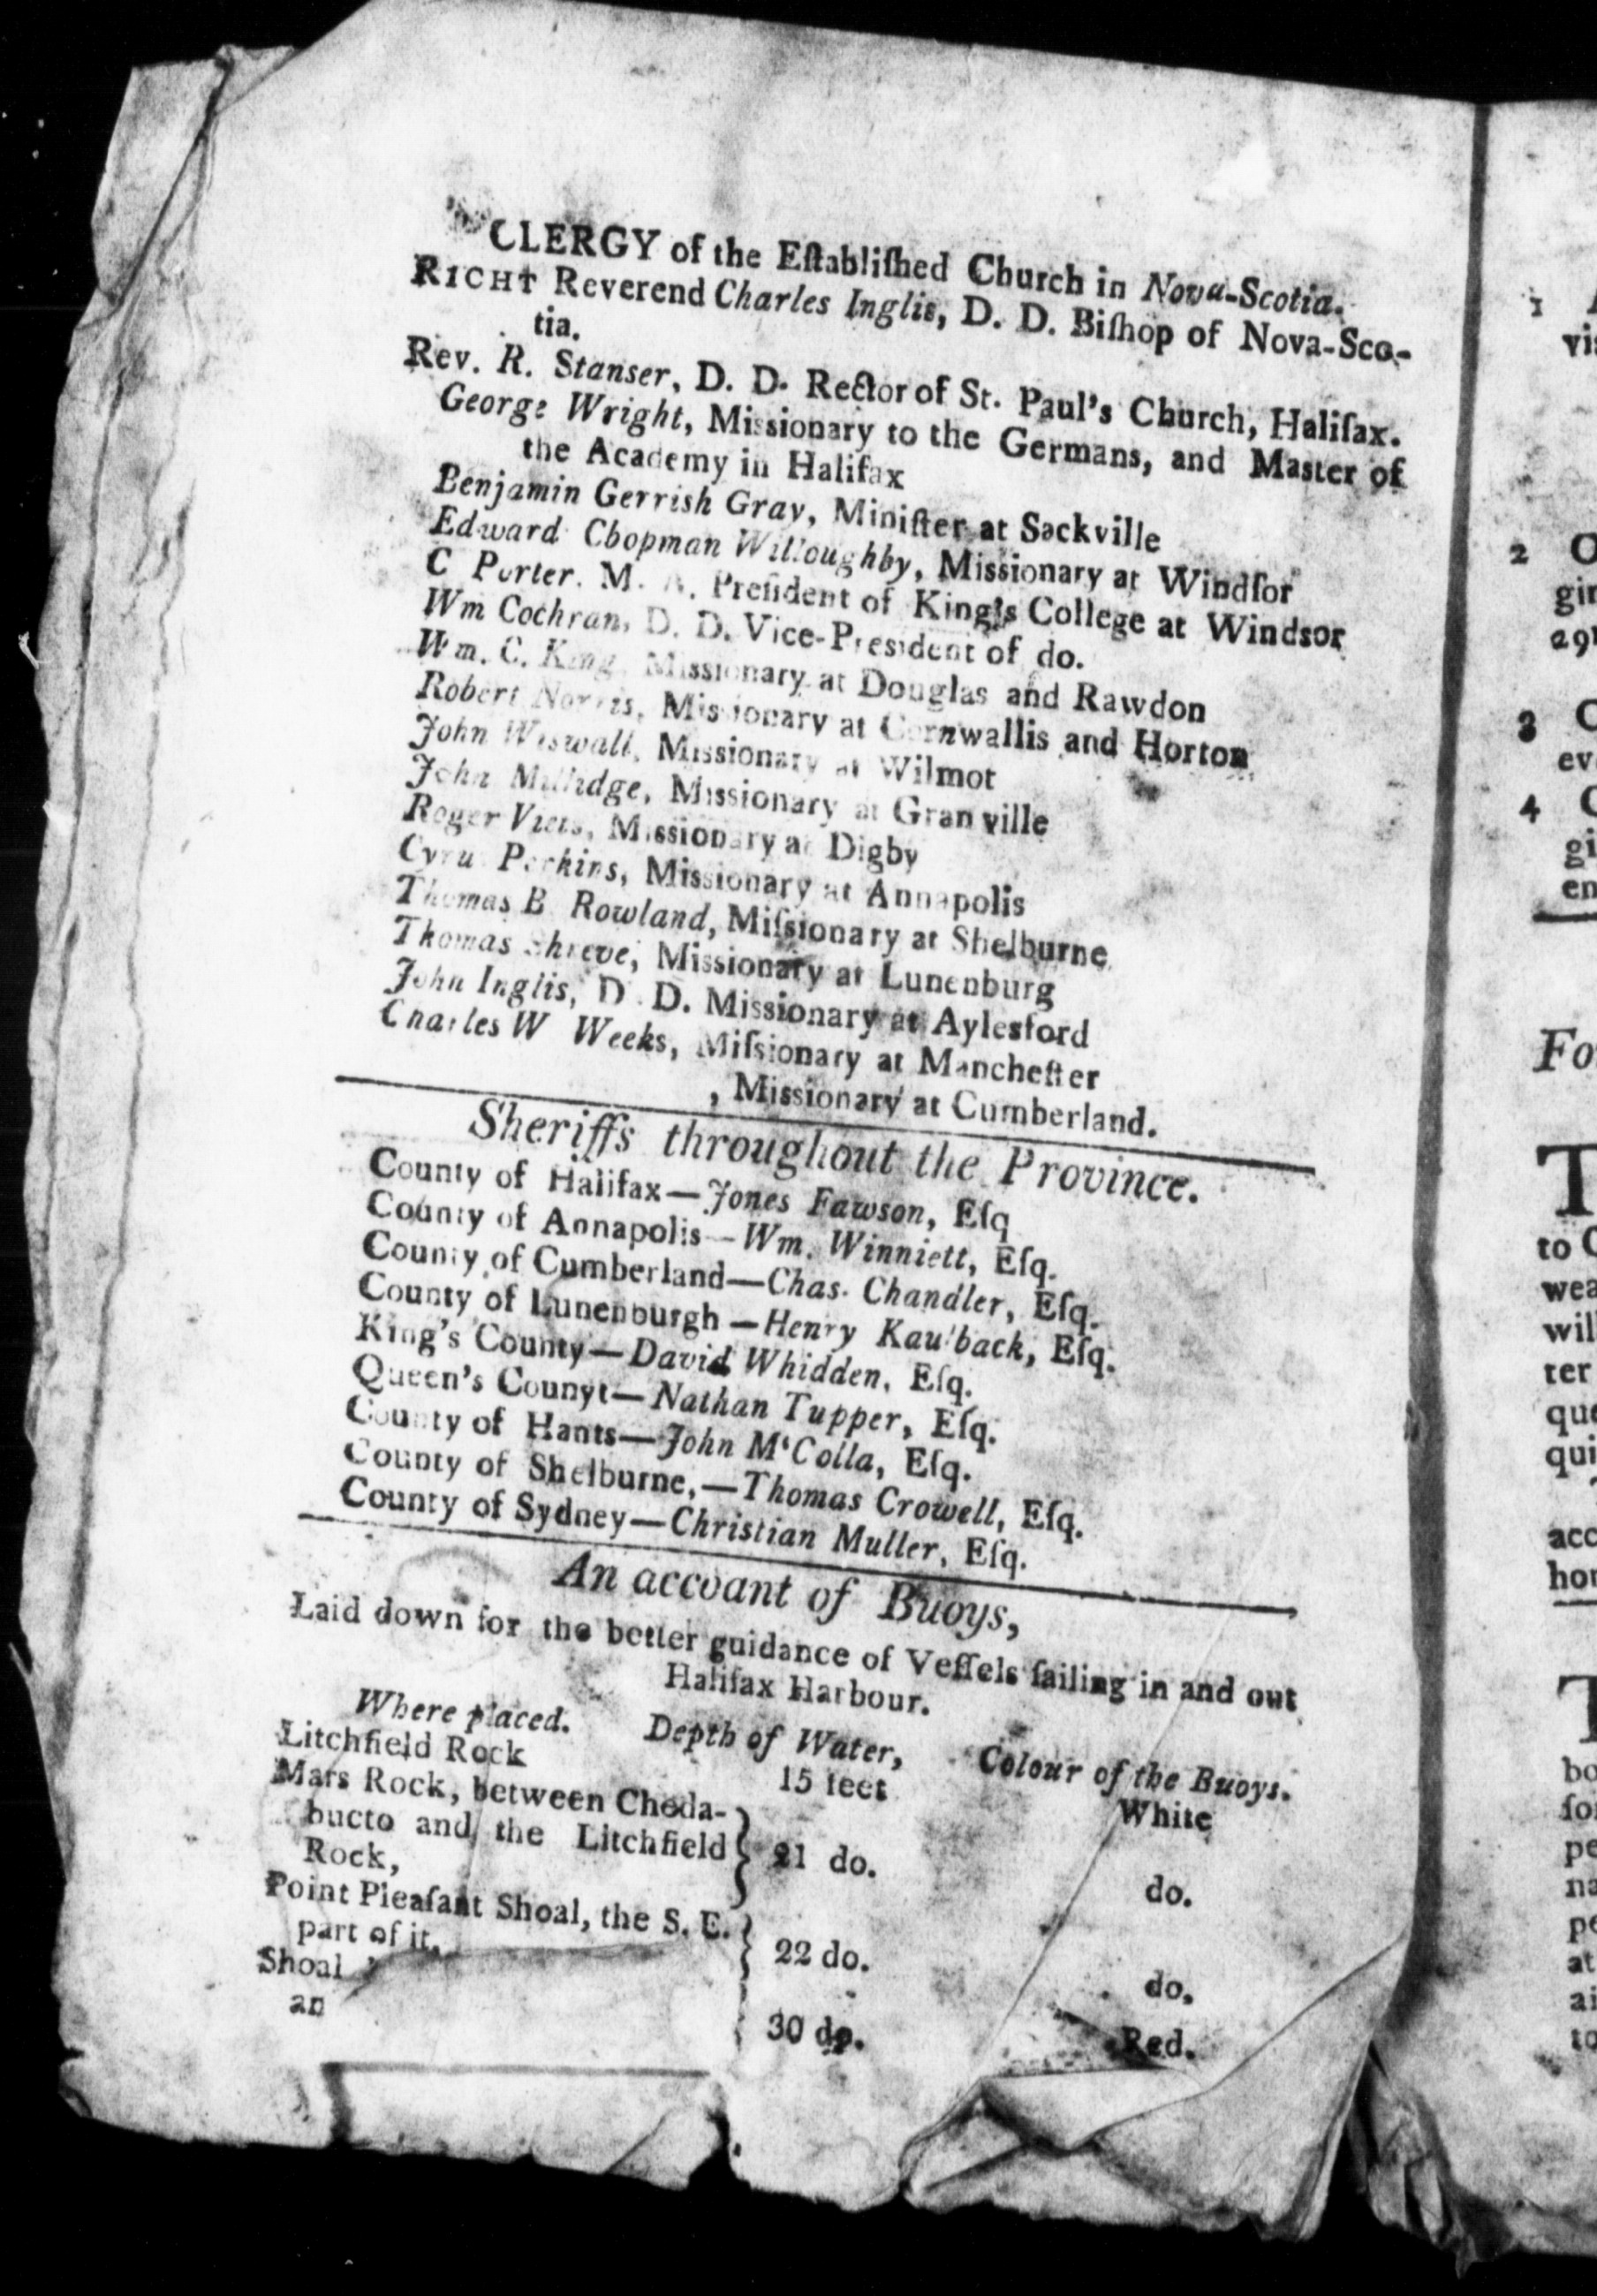 CLERGY of the Eſtabliſhed Church in Nova-Scotia.
RIGHT Reverend Charles Inglis, D. D. Biſhop of Nova-Sco-
tia.
Rev. R. Stanser, D. D. Rector of St. Paul's Church, Halifax.
George Wright, Missionary to the Germans, and Master of
the Academy in Halifax
Benjamin Gerrish Gray, Miniſter at Sackville
Edward Chopman Willoughby, Missionary at Windſor
C Porter. M. A. Preſident of King's College at Windsor
Wm Cochran, D. D. Vice-President of do.
Wm. C. King, Missionary at Douglas and Rawdon
Robert Norris, Missionary at Cornwallis and Horton
John Wiswall, Missionary at Wilmot
John Millidge, Missionary at Granville
Roger Viets, Missionary at Digby
Cyrus Perkins, Missionary at Annapolis
Thomas B Rowland, Miſsionary at Shelburne
Thomas Shreve, Missionary at Lunenburg
John Inglis, D. D. Missionary at Aylesford
Charles W Weeks, Miſsionary at Mancheſter
, Missionary at Cumberland.
Sheriffs throughout the Province.
County of Halifax—Jones Fawson, Eſq
County of Annapolis—Wm. Winniett, Eſq.
County of Cumberland—Chas. Chandler, Eſq.
County of Lunenburgh—Henry Kaulback, Eſq.
King's County—David Whidden, Eſq.
Queen's Counyt—Nathan Tupper, Eſq.
County of Hants—John M'Colla, Eſq.
County of Shelburne,—Thomas Crowell, Eſq.
County of Sydney—Christian Muller, Eſq.
An accoant of Buoys,
Laid down for the better guidance of Veſſels ſailing in and out
Halifax Harbour.
Where placed. Depth of Water, Colour of the Buoys.
Litchfield Rock 15 feet White
Mars Rock, between Cheda-
bucto and the Litchfield
Rock, 21 do. do.
Point Pleaſant Shoal, the S. E.
part of it, 22 do. do.
Shoal
an 30 do. Red.
1
vi
2 O
gi
291
3 C
ev
4 C
gi
en
Fo
T
to C
wea
wil
ter
que
qui
acc
hor
T
bo
for
pe
na
pe
at
ai
to